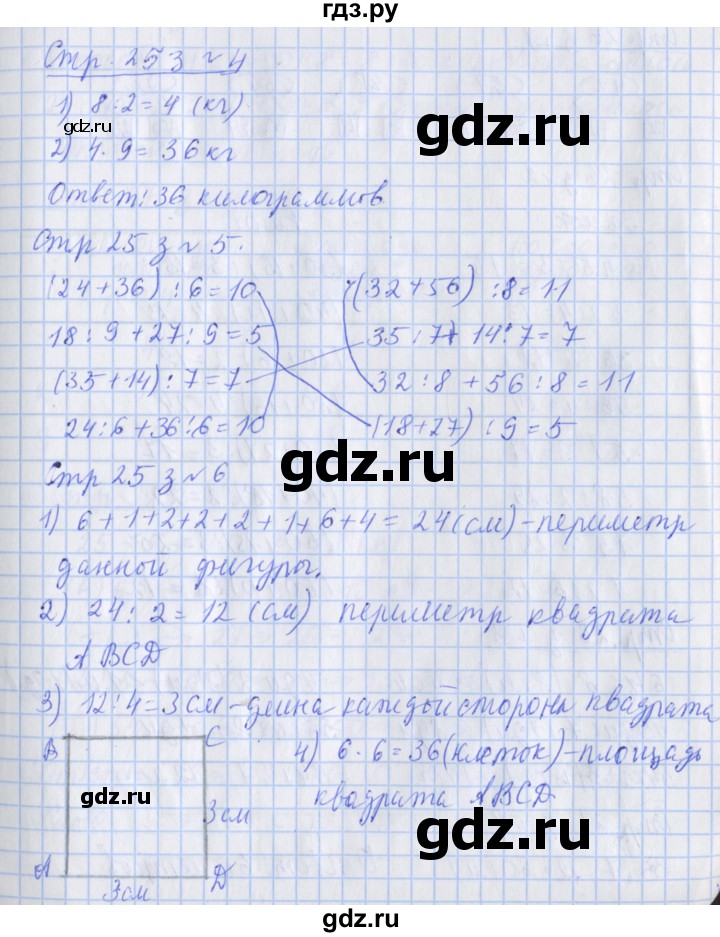 гдз.ру
Стр. 25 з № 4
1) 8:2=4 (кг)
gdz.ru
2) 4·9=36 кг
gdz.ru
Ответ: 36 килограммов
Стр 25 з № 5.
(24+36) : 6=10 (32+56) :8=11
18:9+27:9=5 35:7+14:7=7
(35+14):7=7 32:8+56:8=11
24:6+36:6=10 (18+27) :9=5
gdz.ru
Стр 25 з № 6
1) 6+1+2+2+2+1+6+4=24(см)-периметр
данной фигуры.
2) 24:2=12 (см) периметр квадрата
ABCD
3) 12:4=3 см-длина каждой стороны квадрата
B C 4) 6·6=36(клеток)-площадь
gdz.ru
квадрата ABCD
3 см
gdz.ru
A D
3 см
gdz.ru